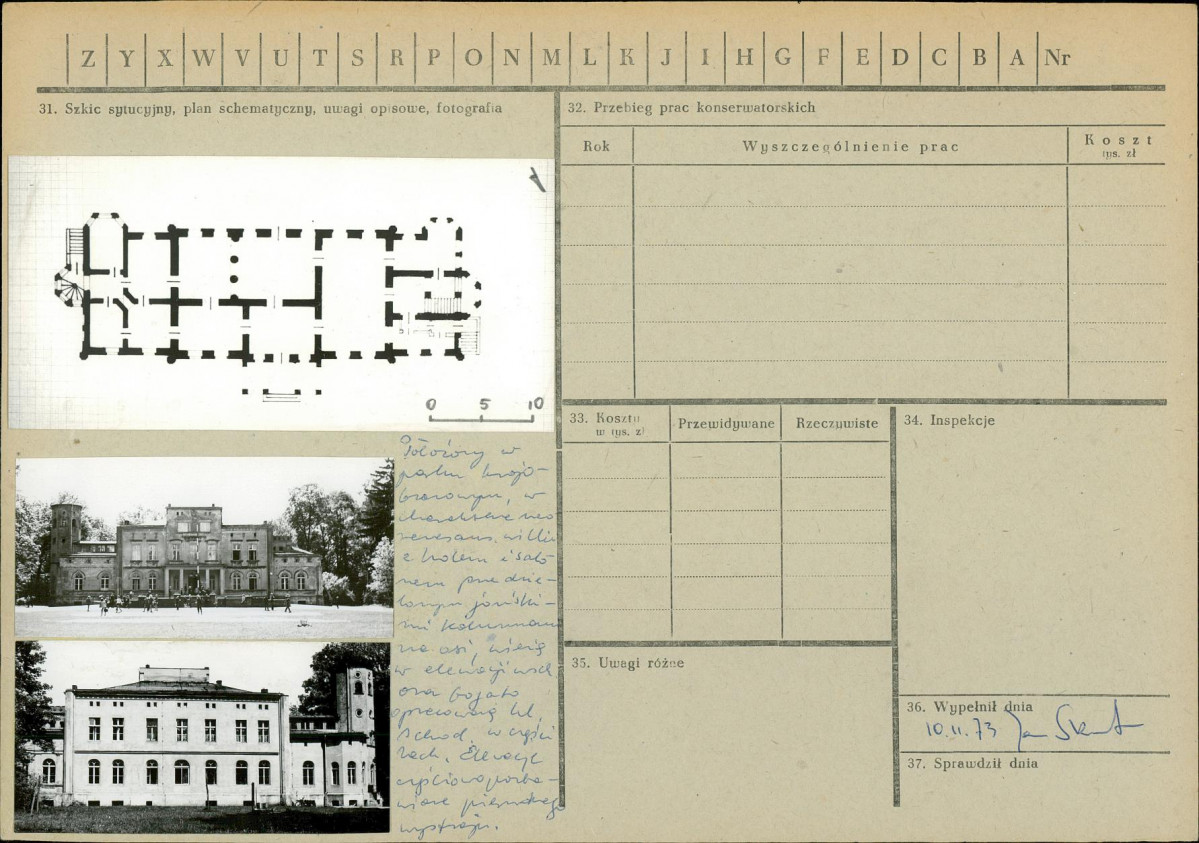 Z Y X W V U T S R P O N M L K J I H G F E D C B A Nr
31. Szkic sytucyjny, plan schematyczny, uwagi opisowe, fotografia
0 5 10
Położony w
parku krajo-
brazowym, w
charakterze neo
renesans. willi
z holem i salo
nem przedzie-
lonym joński-
mi kolumnam
na osi, wieżą
w elewacji wsch.
oraz bogato
opracowaną kl.
schod. w części
zach. Elewacje
częściowo pozba-
wione pierwotnego
wystroju.
32. Przebieg prac konserwatorskich
Rok
Wyszczególnienie prac
Koszt
tys. zł
33. Koszty
w tys. zł
Przewidywane
Rzeczywiste
34. Inspekcje
35. Uwagi różne
36. Wypełnił dnia
10.11.73 Jan
37. Sprawdził dnia